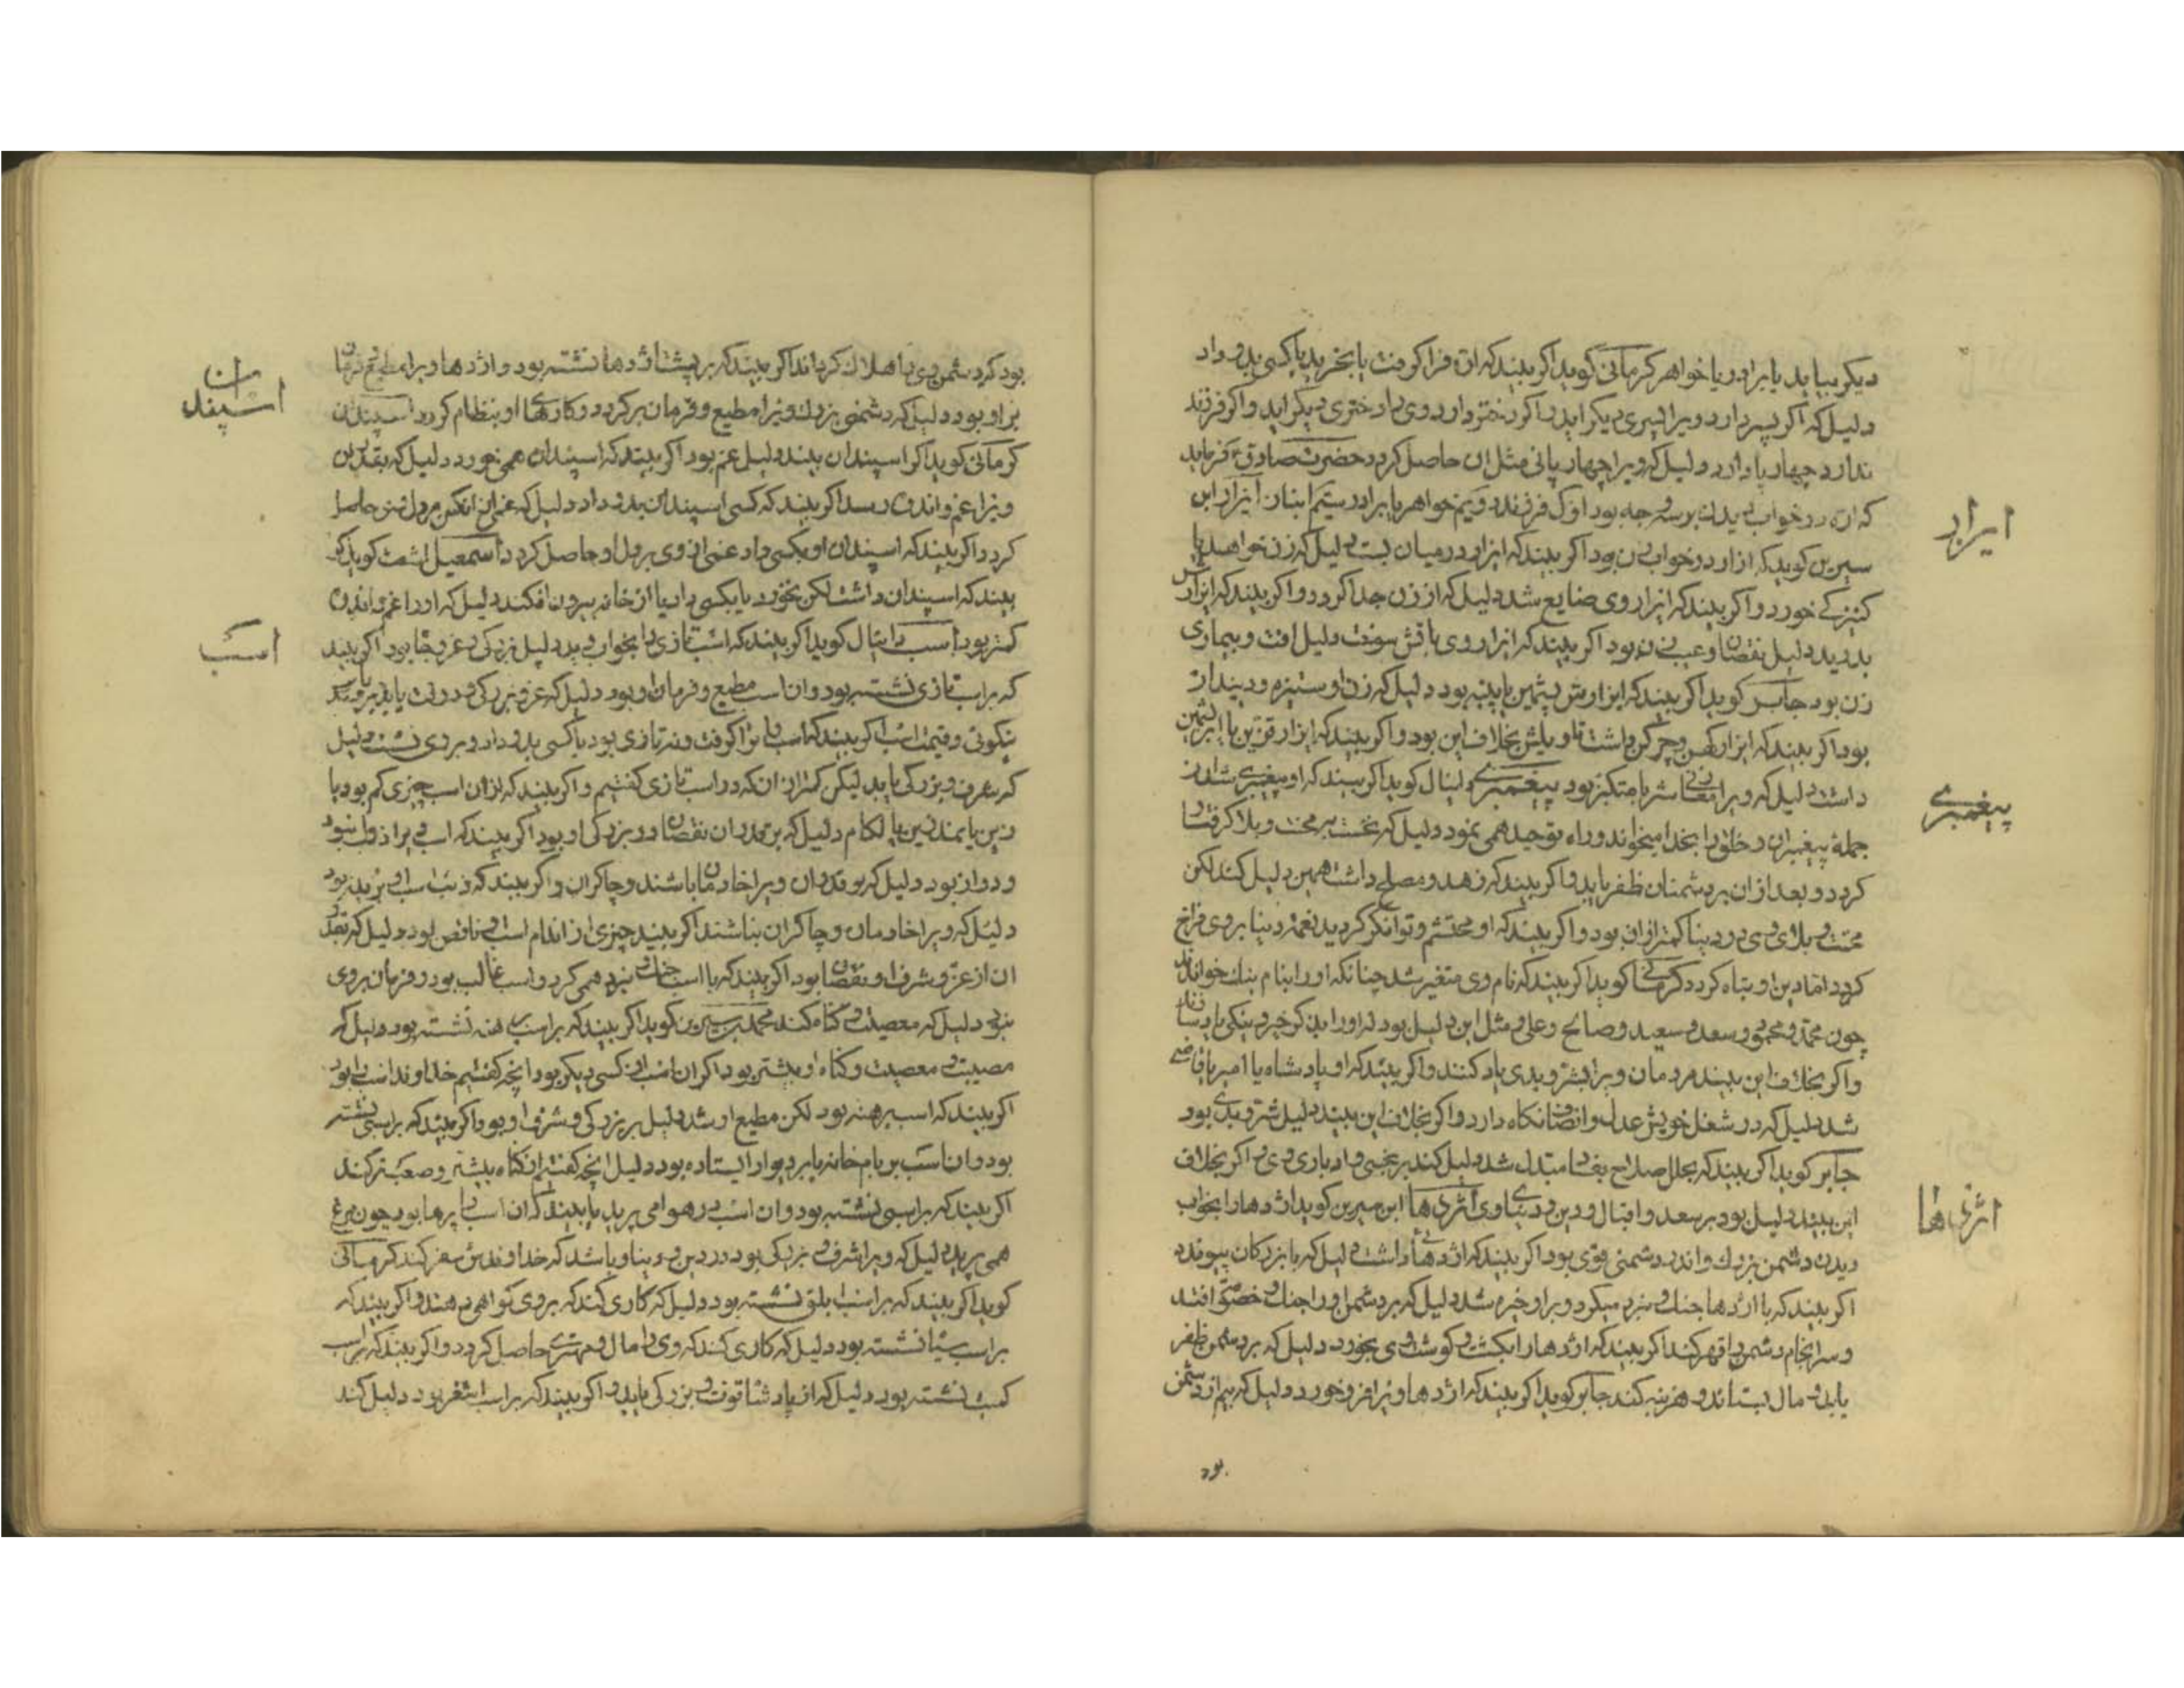 دیگر بیابد یا برادر یا خواهر کرمانی گوید اگر بیند که اره فرا گرفت یا بخرید یا کسی بدو داد
دلیل که اگر پسر دارد ویرا پسری دیگر آید و اگر دختر دارد وی را دختری دیگر آید و اگر فرزند
ندارد چهارپا دارد دلیل که ویرا چهارپائی مثل آن حاصل گردد حضرت صادق فرماید
که اره در خواب دیدن بر سه وجه بود اول فرزند دویم خواهر یا برادر سیم انباز ابن
سیرین گوید که ازار در خواب زن بود اگر بیند که ازار در میان بست دلیل که زن خواهد یا
کنیزکی خورد و اگر بیند که ازار وی ضایع شد دلیل که از زن جدا گردد و اگر بیند که ازارش
بدرید دلیل نقصان و عیب زن بود اگر بیند که ازار وی باتش سوخت دلیل افت و بیماری
زن بود جابر گوید اگر بیند که ازارش پشمین یا پنبه بود دلیل که زن او ستیزه و دیندار
بود اگر بیند که ازار کهن و چرکن داشت تاویلش بخلاف این بود و اگر بیند که ازار قزین یا ابریشمین
داشت دلیل که ویرا زنی معاشر یا متکبر بود پیغمبری دانیال گوید اگر بیند که او پیغمبری شد از
جمله پیغمبران و خلق را بخدا میخواند و راه توحید همی نمود دلیل که نخست بر محنت و بلا گرفتار
گردد و بعد از آن بر دشمنان ظفر یابد و اگر بیند که زهد و مصلح داشت همین دلیل کند لکن
محنت و بلای وی در دنیا کمتر از آن بود و اگر بیند که او محتشم و توانگر گردید نعمت دنیا بروی فراخ
گردد اما دین او تباه گردد کرمانی گوید اگر بیند که نام وی متغیر شد چنانکه او را بنام نیک خواندند
چون محمد و محمود و سعد و سعید و صالح و علی و مثل این دلیل بود که او را بذکر خیر و نیکی یاد
و اگر بخلاف این بیند مردمان ویرا بشر و بدی یاد کنند و اگر بیند که او پادشاه یا امیر یا قاضی
شد دلیل که در شغل خویش عدل و انصاف نگاه دارد و اگر بخلاف این بیند دلیل شر و بدی بود
جابر گوید اگر بیند که بحال صلاح بفساد مبتدل شد دلیل کند بر نحسی و ادباری وی و اگر بخلاف
این بیند دلیل بود بر سعد و اقبال و دین و دنیاوی اژدها ابن سیرین گوید اژدها را بخواب
دیدن دشمن بزرگ و اندر دشمنی قوی بود اگر بیند که اژدهائی داشت دلیل که با بزرگان پیوندد
اگر بیند که با اژدها جنک و نبرد میکرد و بر او خیره شد دلیل که بر دشمن او را جنک و خصومت افتد
و سرانجام دشمن را قهر کند اگر بیند که اژدها را بکشت و گوشت وی بخورد دلیل که بر دشمن ظفر
یابد و مال بستاند و هزینه کند جابر گوید اگر بیند که اژدها ویرا فرو خورد دلیل که بیم از دشمن
بود
ایزار
پیغمبری
اژدها
بود که دشمن وی را هلاک گرداند اگر بیند که بر پشت اژدها نشسته بود و اژدها ویرا مطیع و فرمان
بر او بود دلیل که دشمنی بزرگ ویرا مطیع و فرمان بر گردد و کارهای او بنظام گردد اسپندان
کرمانی گوید اگر اسپندان بیند دلیل غم بود اگر بیند که اسپندان همی خورد دلیل که بقدر آن
ویرا غم و اندوه رسد اگر بیند که کسی اسپندان بدو داد دلیل که غمی از آنکس بر دل وی حاصل
گردد اگر بیند که اسپندان او بکسی داد غمی از وی بر دل او حاصل گردد اسمعیل اشعث گوید اگر
بیند که اسپندان داشت لکن نخورد یا بکسی داد یا از خانه بیرون افکند دلیل که او را غم و اندوه
کمتر بود اسب دانیال گوید اگر بیند که اسب تازی را بخواب دید دلیل بزرگی و عز و جاه بود اگر بیند
که بر اسب تازی نشسته بود و آن اسب مطیع و فرمان او بود دلیل که عز و بزرگی و دولت یابد بر قدر
نیکوئی و قیمت اسب اگر بیند که اسب را فرا گرفت و نه تازی بود یا کسی بدو داد و بروی نشست دلیل
که شرف و بزرگی یابد لیکن کمتر از آنکه در اسب تازی گفتیم و اگر بیند که از آن اسب چیزی کم بود با
زین یا نمدزین یا لکام دلیل که بر قدر آن نقصان در بزرگی او بود اگر بیند که اسب ویرا ذنب انبود
و دراز بود دلیل که بر قدر آن ویرا خادمان باشند و چاکران و اگر بیند که ذنب اسب او بریده بود
دلیل که ویرا خادمان و چاکران نباشند اگر بیند چیزی از اندام اسب وی ناقص بود دلیل که بقدر
آن از عز و شرف او نقصان بود اگر بیند که با اسب جنک و نبرد همی کرد و اسب غالب بود و فرمان بر وی
نبود دلیل که معصیت و گناه کند محمد بن سیرین گوید اگر بیند که بر اسب برهنه نشسته بود دلیل که
مصیبت و معصیت و گناه او بیشتر بود اگر آن اسب از کسی دیگر بود آنچه گفتیم خداوند اسب را بود
اگر بیند که اسب برهنه بود لکن مطیع او شد دلیل بر بزرگی و شرف او بود اگر بیند که بر اسبی نشسته
بود و آن اسب بر بام خانه یا بر دیوار ایستاده بود دلیل آنچه گفتیم از گناه بیشتر و صعبتر کند
اگر بیند که بر اسبی نشسته بود و آن اسب در هوا می پرید یا بیند که آن اسب را پرها بود چون مرغ
همی پرید دلیل که ویرا شرف و بزرگی بود در دین و دنیا و باشد که خداوندش سفر کند کرمانی
گوید اگر بیند که بر اسب ابلق نشسته بود دلیل که کاری کند که بروی گواهی دهند و اگر بیند که
بر اسب سیاه نشسته بود دلیل که کاری کند که وی را مال و مهتری حاصل گردد و اگر بیند که بر اسب
کمیت نشسته بود دلیل که از پادشاه قوت و بزرگی یابد و اگر بیند که بر اسب اشقر بود دلیل کند
اسپندان
اسب